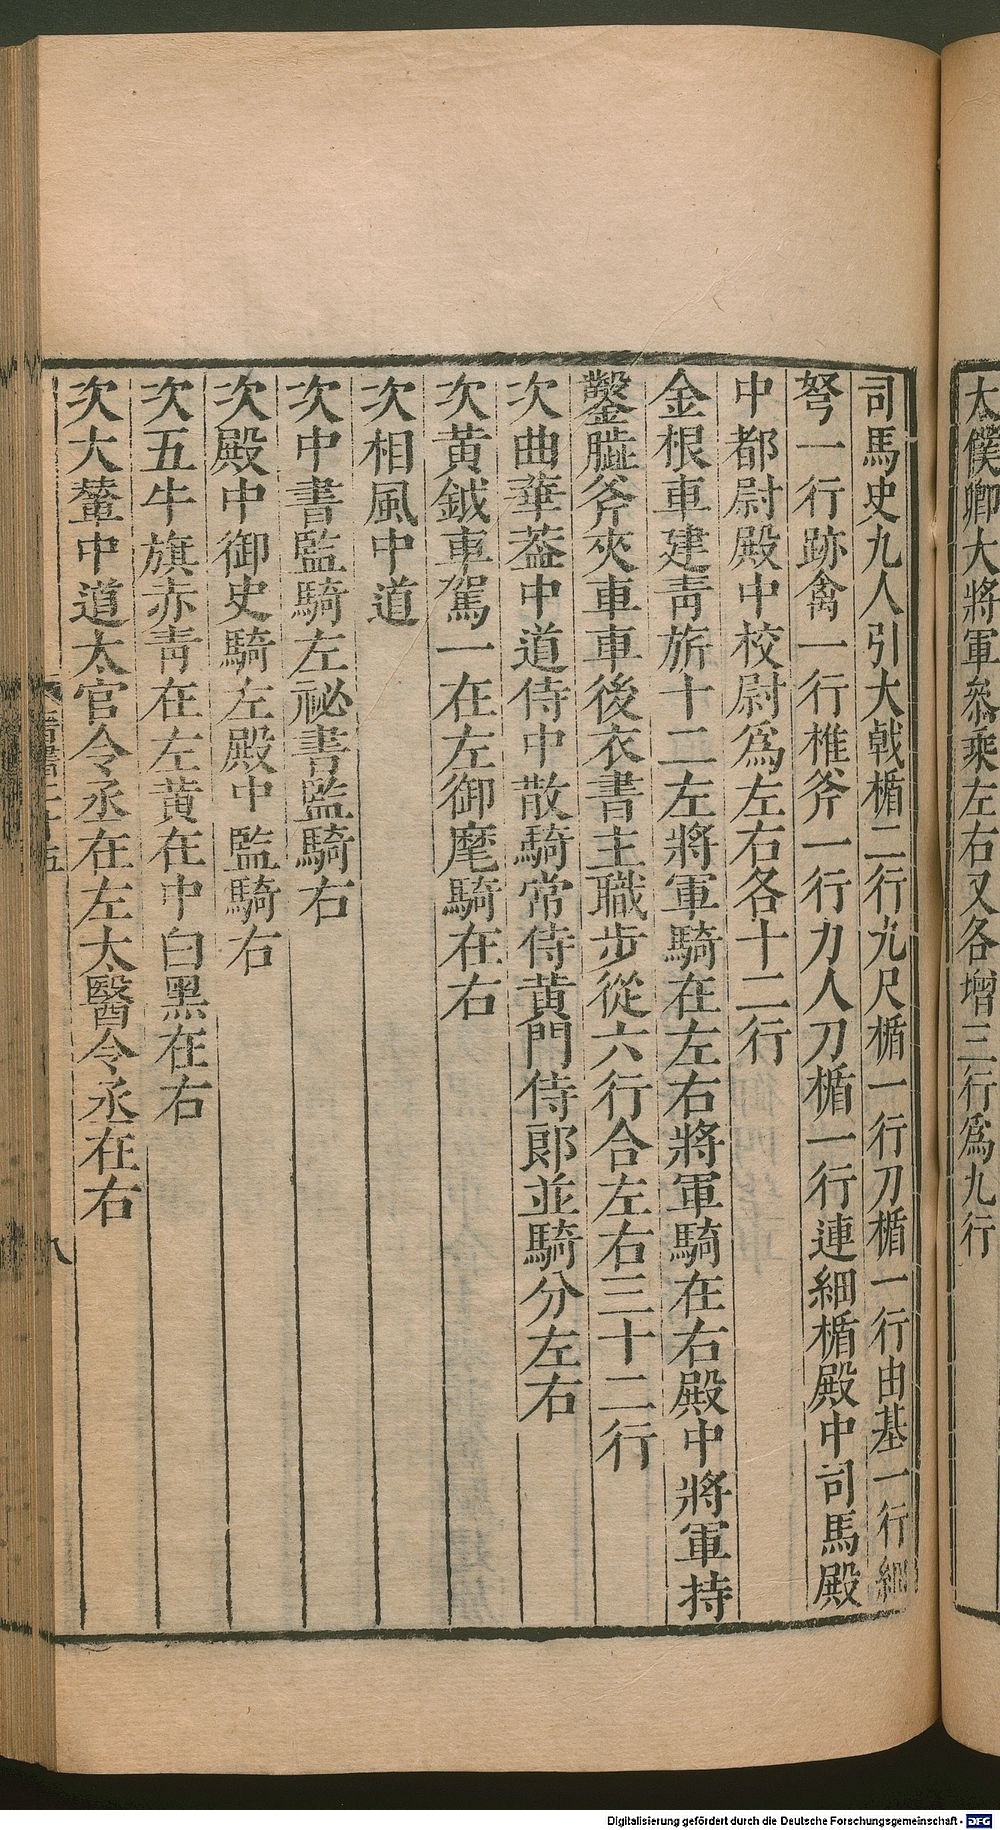 太僕卿大將軍叅乘左右又各增三行爲九行
司馬史九人引大戟楯二行九尺楯一行刀楯一行由基一行細
弩一行跡禽一行椎斧一行力人刀楯一行連細楯殿中司馬殿
中都尉殿中校尉爲左右各十二行
金根車建靑旂十二左將軍騎在左右將軍騎在右殿中將軍持
鑿腦斧夾車車後衣書主職步從六行合左右三十二行
次曲華葢中道侍中散騎常侍黃門侍郎並騎分左右
次黃鉞車駕一在左御麾騎在右
次相風中道
次中書監騎左祕書監騎右
次殿中御史騎左殿中監騎右
次五牛旗赤靑在左黃在中白黑在右
次大輦中道太官令丞在左太醫令丞在右
八
Digitalisierung gefördert durch die Deutsche Forschungsgemeinschaft - DFG